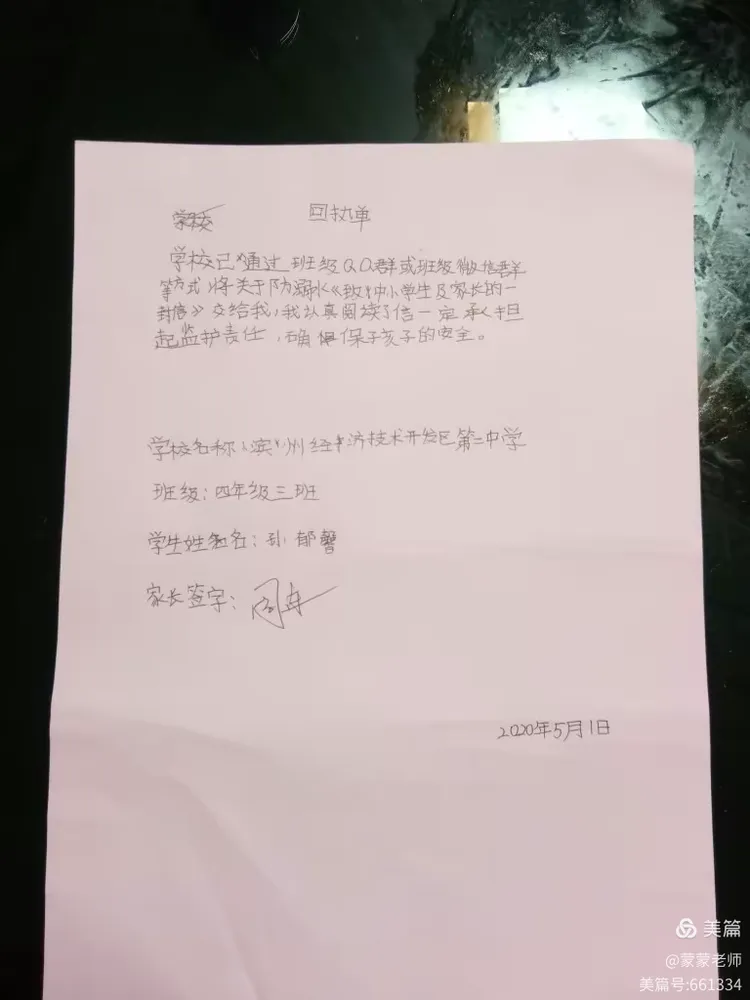 学校 回执单
学校已通过班级QQ群或班级微信群
等方式,将关于防溺水《致中小学生及家长的一
封信》交给我,我认真阅读了信一定承担
起监护责任,确保孩子的安全。
学校名称:滨州经济技术开发区第二中学
班级:四年级三班
学生姓名:孙郁馨
家长签字:
2020年5月1日
美篇
@蒙蒙老师
美篇号:661334